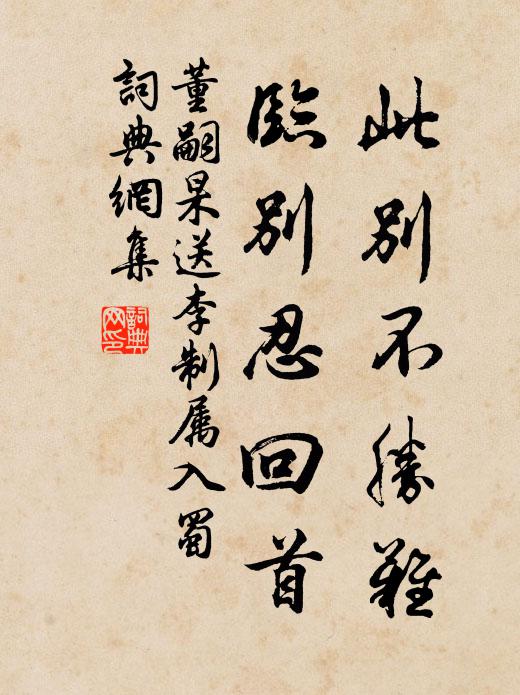 此別不勝難
臨別忍回首
董嗣杲送李制属入蜀
詞典網集
詞典网印